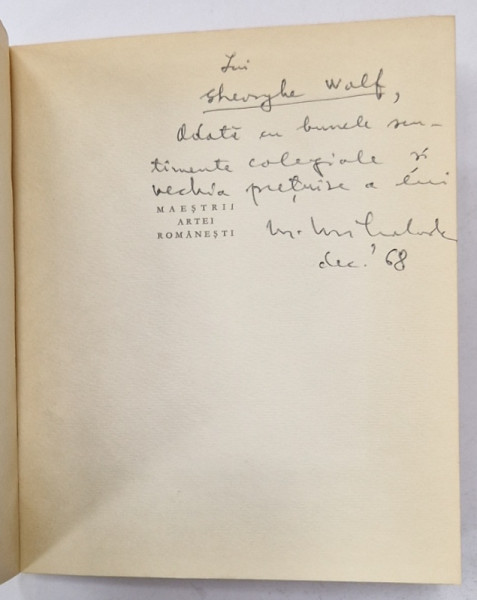 Lui
Gheorghe Wolf,
Odată cu bunele sen-
timente colegiale și
vechia prețuire a lui
MAEȘTRII
ARTEI
ROMÂNEȘTI
dec. '68